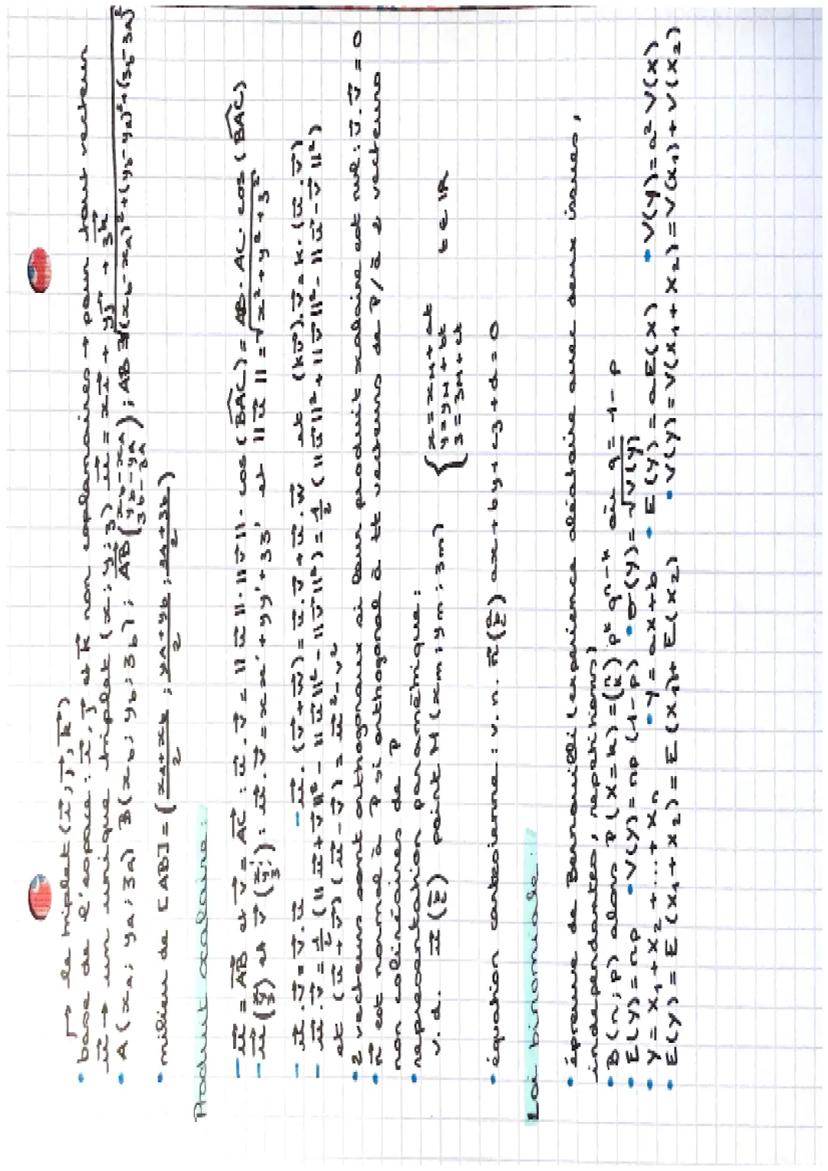 ↱ le triplet (i⃗, j⃗, k⃗)
• base de l'espace : i⃗, j⃗ et k⃗ non coplanaires → pour tout vecteur
u⃗ → un unique triplet (x ; y ; z) u⃗ = xi⃗ + yj⃗ + zk⃗
• A(xa ; ya ; za) B(xb ; yb ; zb) ; AB⃗ (xb-xa yb-ya zb-za) ; AB = √(xb-xa)²+(yb-ya)²+(zb-za)²
• milieu de [AB] = (xa+xb/2 ; ya+yb/2 ; za+zb/2)
Produit scalaire :
– u⃗ = AB⃗ et v⃗ = AC⃗ : u⃗.v⃗ = ||u⃗||.||v⃗||.cos(BAC) = AB.AC.cos(BAC)
– u⃗(x y z) et v⃗(x' y' z') : u⃗.v⃗ = xx'+yy'+zz' et ||u⃗|| = √x²+y²+z²
– u⃗.v⃗ = v⃗.u⃗ – u⃗.(v⃗+w⃗) = u⃗.v⃗ + u⃗.w⃗ et (ku⃗).v⃗ = k.(u⃗.v⃗)
– u⃗.v⃗ = 1/2 (||u⃗+v⃗||² - ||u⃗||² - ||v⃗||²) = 1/2 (||u⃗||²+||v⃗||² - ||u⃗-v⃗||²)
et (u⃗+v⃗)(u⃗-v⃗) = u⃗²-v⃗²
• 2 vecteurs sont orthogonaux si leur produit scalaire est nul : u⃗.v⃗ = 0
• n⃗ est normal à P si orthogonal à tt vecteurs de P/à 2 vecteurs
non colinéaires de P
• représentation paramétrique :
v.d. u⃗(a b c) point M(xm ; ym ; zm) { x = xM + at
y = yM + bt t ∈ ℝ
z = zM + ct
• équation cartésienne : v.n. n⃗(a b c) ax+by+cz+d=0
Loi binomiale :
• épreuve de Bernouilli (expérience aléatoire avec deux issues,
indépendantes, répétitions)
• B(n;p) alors P(X=k) = (n k) p^k q^n-k où q = 1-p
• E(Y) = np • V(Y) = np(1-p) • σ(Y) = √V(Y)
• Y = X1+X2+...+Xn • Y = ax+b • E(Y) = aE(X) • V(Y) = a² V(X)
• E(Y) = E(X1+X2) = E(X1)+E(X2) • V(Y) = V(X1+X2) = V(X1)+V(X2)